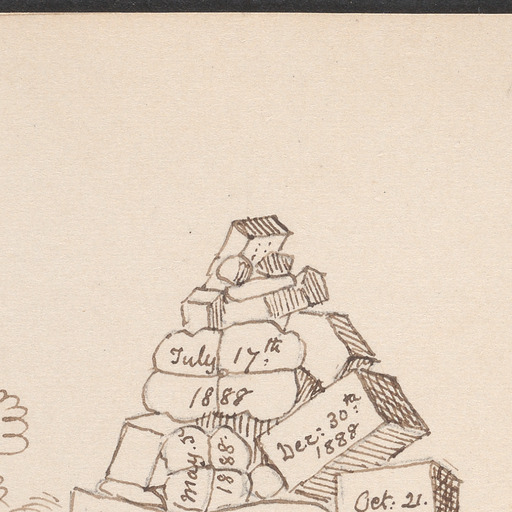 July 17th
1888
Dec: 30th
1888
May. 5
1888
Oct: 21.